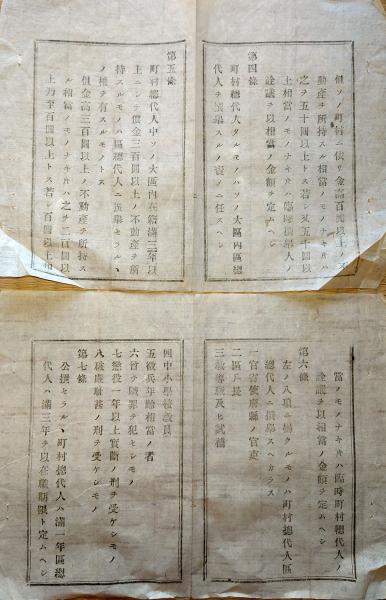 但ソノ町村ニ依リ金高百圓以上ノ不
動產ヲ所持スル相當ノモノナキ𪜈ハ
之ヲ五十圓以上トス若シ又五十圓以
上相當ノモノナキ𪜈ハ臨時總代人ノ
詮議ヲ以相當ノ金額ヲ定ムヘシ
第四條
町村總代人タルモノハソノ大區內區總
代人ヲ撰舉スルノ責ニ任スヘシ
第五條
町村總代人中ソノ大區內在籍滿三年以
上ニシテ價金三百圓以上ノ不動產ヲ所
持スルモノハ區總代人ニ撰舉セラルヽ
ノ權ヲ有スルモノトス
但金高三百圓以上ノ不動產ヲ所持ス
ル相當ノモノナキ𪜈ハ之ヲ二百圓以
上乃至百圓以上トス若シ百圓以上相
當ノモノナキ𪜈ハ臨時町村總代人ノ
詮議ヲ以相當ノ金額ヲ定ムヘシ
第六條
左ノ八項ニ揭クルモノハ町村總代人區
總代人ニ撰舉スヘカラス
官省使府縣ノ官吏
二區戶長
三敎導職及ヒ試補
四中小學校敎員
五徵兵年齡相當ノ者
六曾テ贓罪ヲ犯セシモノ
七懲役一年以上實斷ノ刑ヲ受ケシモノ
八破廉耻甚ノ刑ヲ受ケシモノ
第七條
公撰セラルヽ町村總代人ハ滿一年區總
代人ハ滿三年ヲ以在職期限ト定ムヘシ